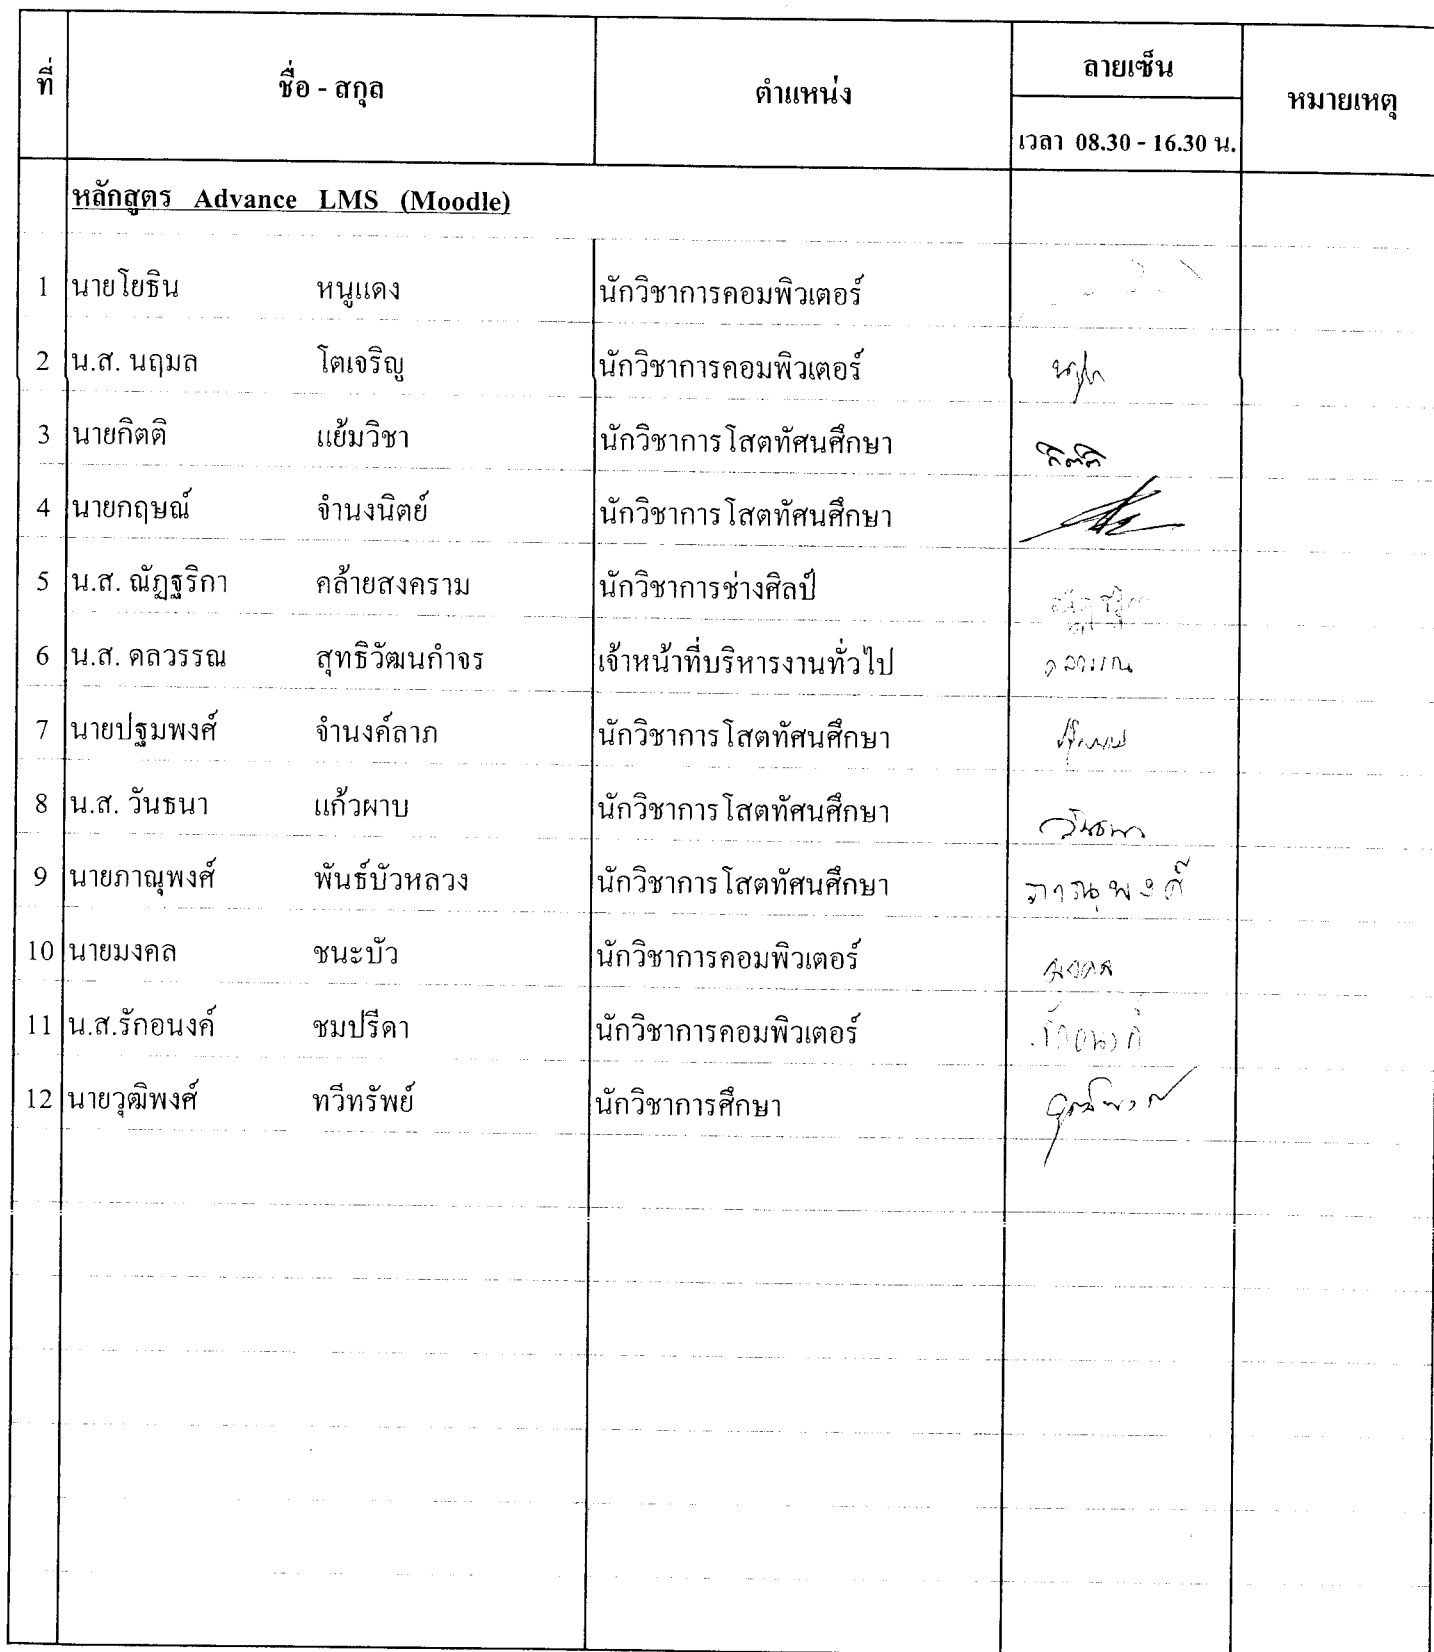 ที่ ชื่อ - สกุล ตำแหน่ง ลายเซ็น หมายเหตุ
เวลา 08.30 - 16.30 น.
หลักสูตร Advance LMS (Moodle)
1 นายโยธิน หนูแดง นักวิชาการคอมพิวเตอร์
2 น.ส. นฤมล โตเจริญ นักวิชาการคอมพิวเตอร์
3 นายกิตติ แย้มวิชา นักวิชาการโสตทัศนศึกษา กิตติ
4 นายกฤษณ์ จำนงนิตย์ นักวิชาการโสตทัศนศึกษา
5 น.ส. ณัฏฐริกา คล้ายสงคราม นักวิชาการช่างศิลป์
6 น.ส. ดลวรรณ สุทธิวัฒนกำจร เจ้าหน้าที่บริหารงานทั่วไป ดลวรรณ
7 นายปฐมพงศ์ จำนงค์ลาภ นักวิชาการโสตทัศนศึกษา
8 น.ส. วันธนา แก้วผาบ นักวิชาการโสตทัศนศึกษา วันธนา
9 นายภาณุพงศ์ พันธ์บัวหลวง นักวิชาการโสตทัศนศึกษา ภาณุพงศ์
10 นายมงคล ชนะบัว นักวิชาการคอมพิวเตอร์ มงคล
11 น.ส.รักอนงค์ ชมปรีดา นักวิชาการคอมพิวเตอร์ รักอนงค์
12 นายวุฒิพงศ์ ทวีทรัพย์ นักวิชาการศึกษา วุฒิพงศ์